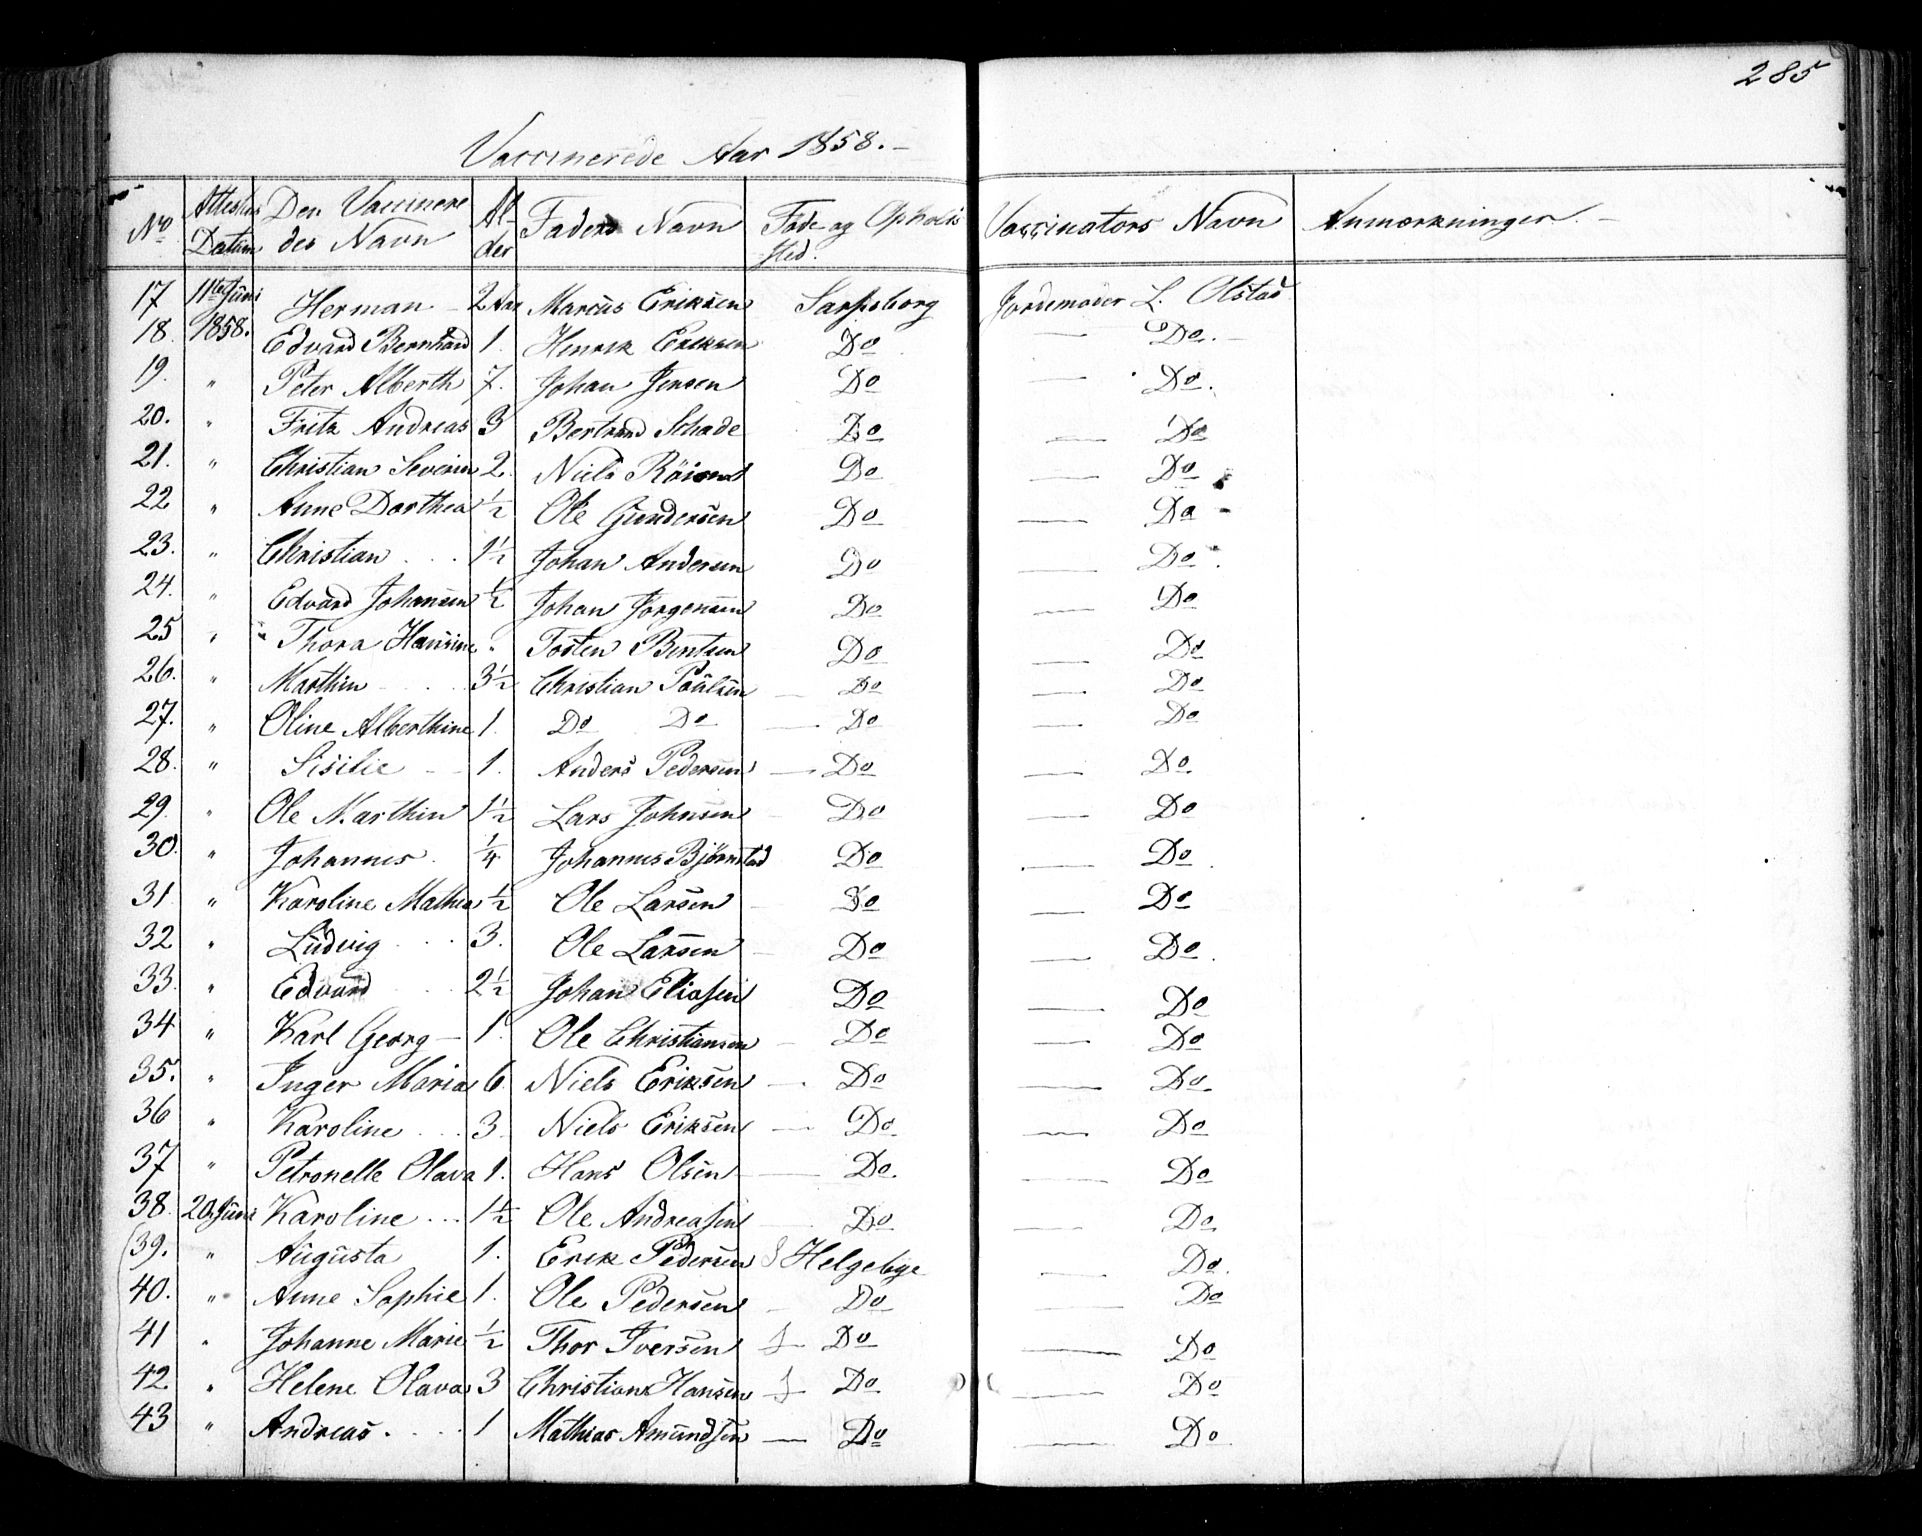 285
Vaccinerede Aar 1858.
No Attestens Datum Den Vaccinere des Navn Al der Faders Navn Føde og Opholds sted. Vaccinators Navn Anmærkninger.
17 11te Juni Herman 2 Aar Marcus Eriksen Sarpsborg Jordemoder L. Olstad
18. 1858. Edvard Bernhard 1. Henrik Eriksen Do Do.
19. " Peter Alberth 7. Johan Jensen Do Do.
20. " Fritz Andreas 3 Bertrand Schade Do Do
21. " Christian Severin 2. Niels Do Do
22 " Anne Dorthea ½ Ole Gundersen Do Do
23. " Christian 1½ Johan Andersen Do Do
24. " Edvard Johansen ½ Johan Jørgensen Do Do
25 " Thora Hansine " Tosten Bentsen Do Do
26. " Marthin 3½ Christian Paulsen Do Do
27. " Oline Alberthine 1. Do Do Do Do
28. " Sisilie 1. Anders Pedersen Do Do
29. " Ole Marthin 1½ Lars Johnsen Do Do
30. " Johannes ¼ Johannes Bjørnstad Do Do
31 " Karoline Mathea ½ Ole Larsen Do Do
32 " Ludvig 3. Ole Larsen Do Do
33. " Edvard 2½ Johan Eliasen Do Do
34 " Karl Georg 1. Ole Christiansen Do Do
35. " Inger Maria 6. Niels Eriksen Do Do
36 " Karoline 3. Niels Eriksen Do. Do
37 " Petronelle Olava 1. Hans Olsen Do. Do
38. 20 Juni Karoline 1½ Ole Andreasen Do Do
39. " Augusta 1. Erik Pedersen Helgebye Do.
40. " Anne Sophie 1. Ole Pedersen Do Do
41 " Johanne Marie ½ Thor Iversen Do Do
42 " Helene Olava 3 Christian Hansen Do Do
43 " Andreas 1 Mathias Amundsen Do Do